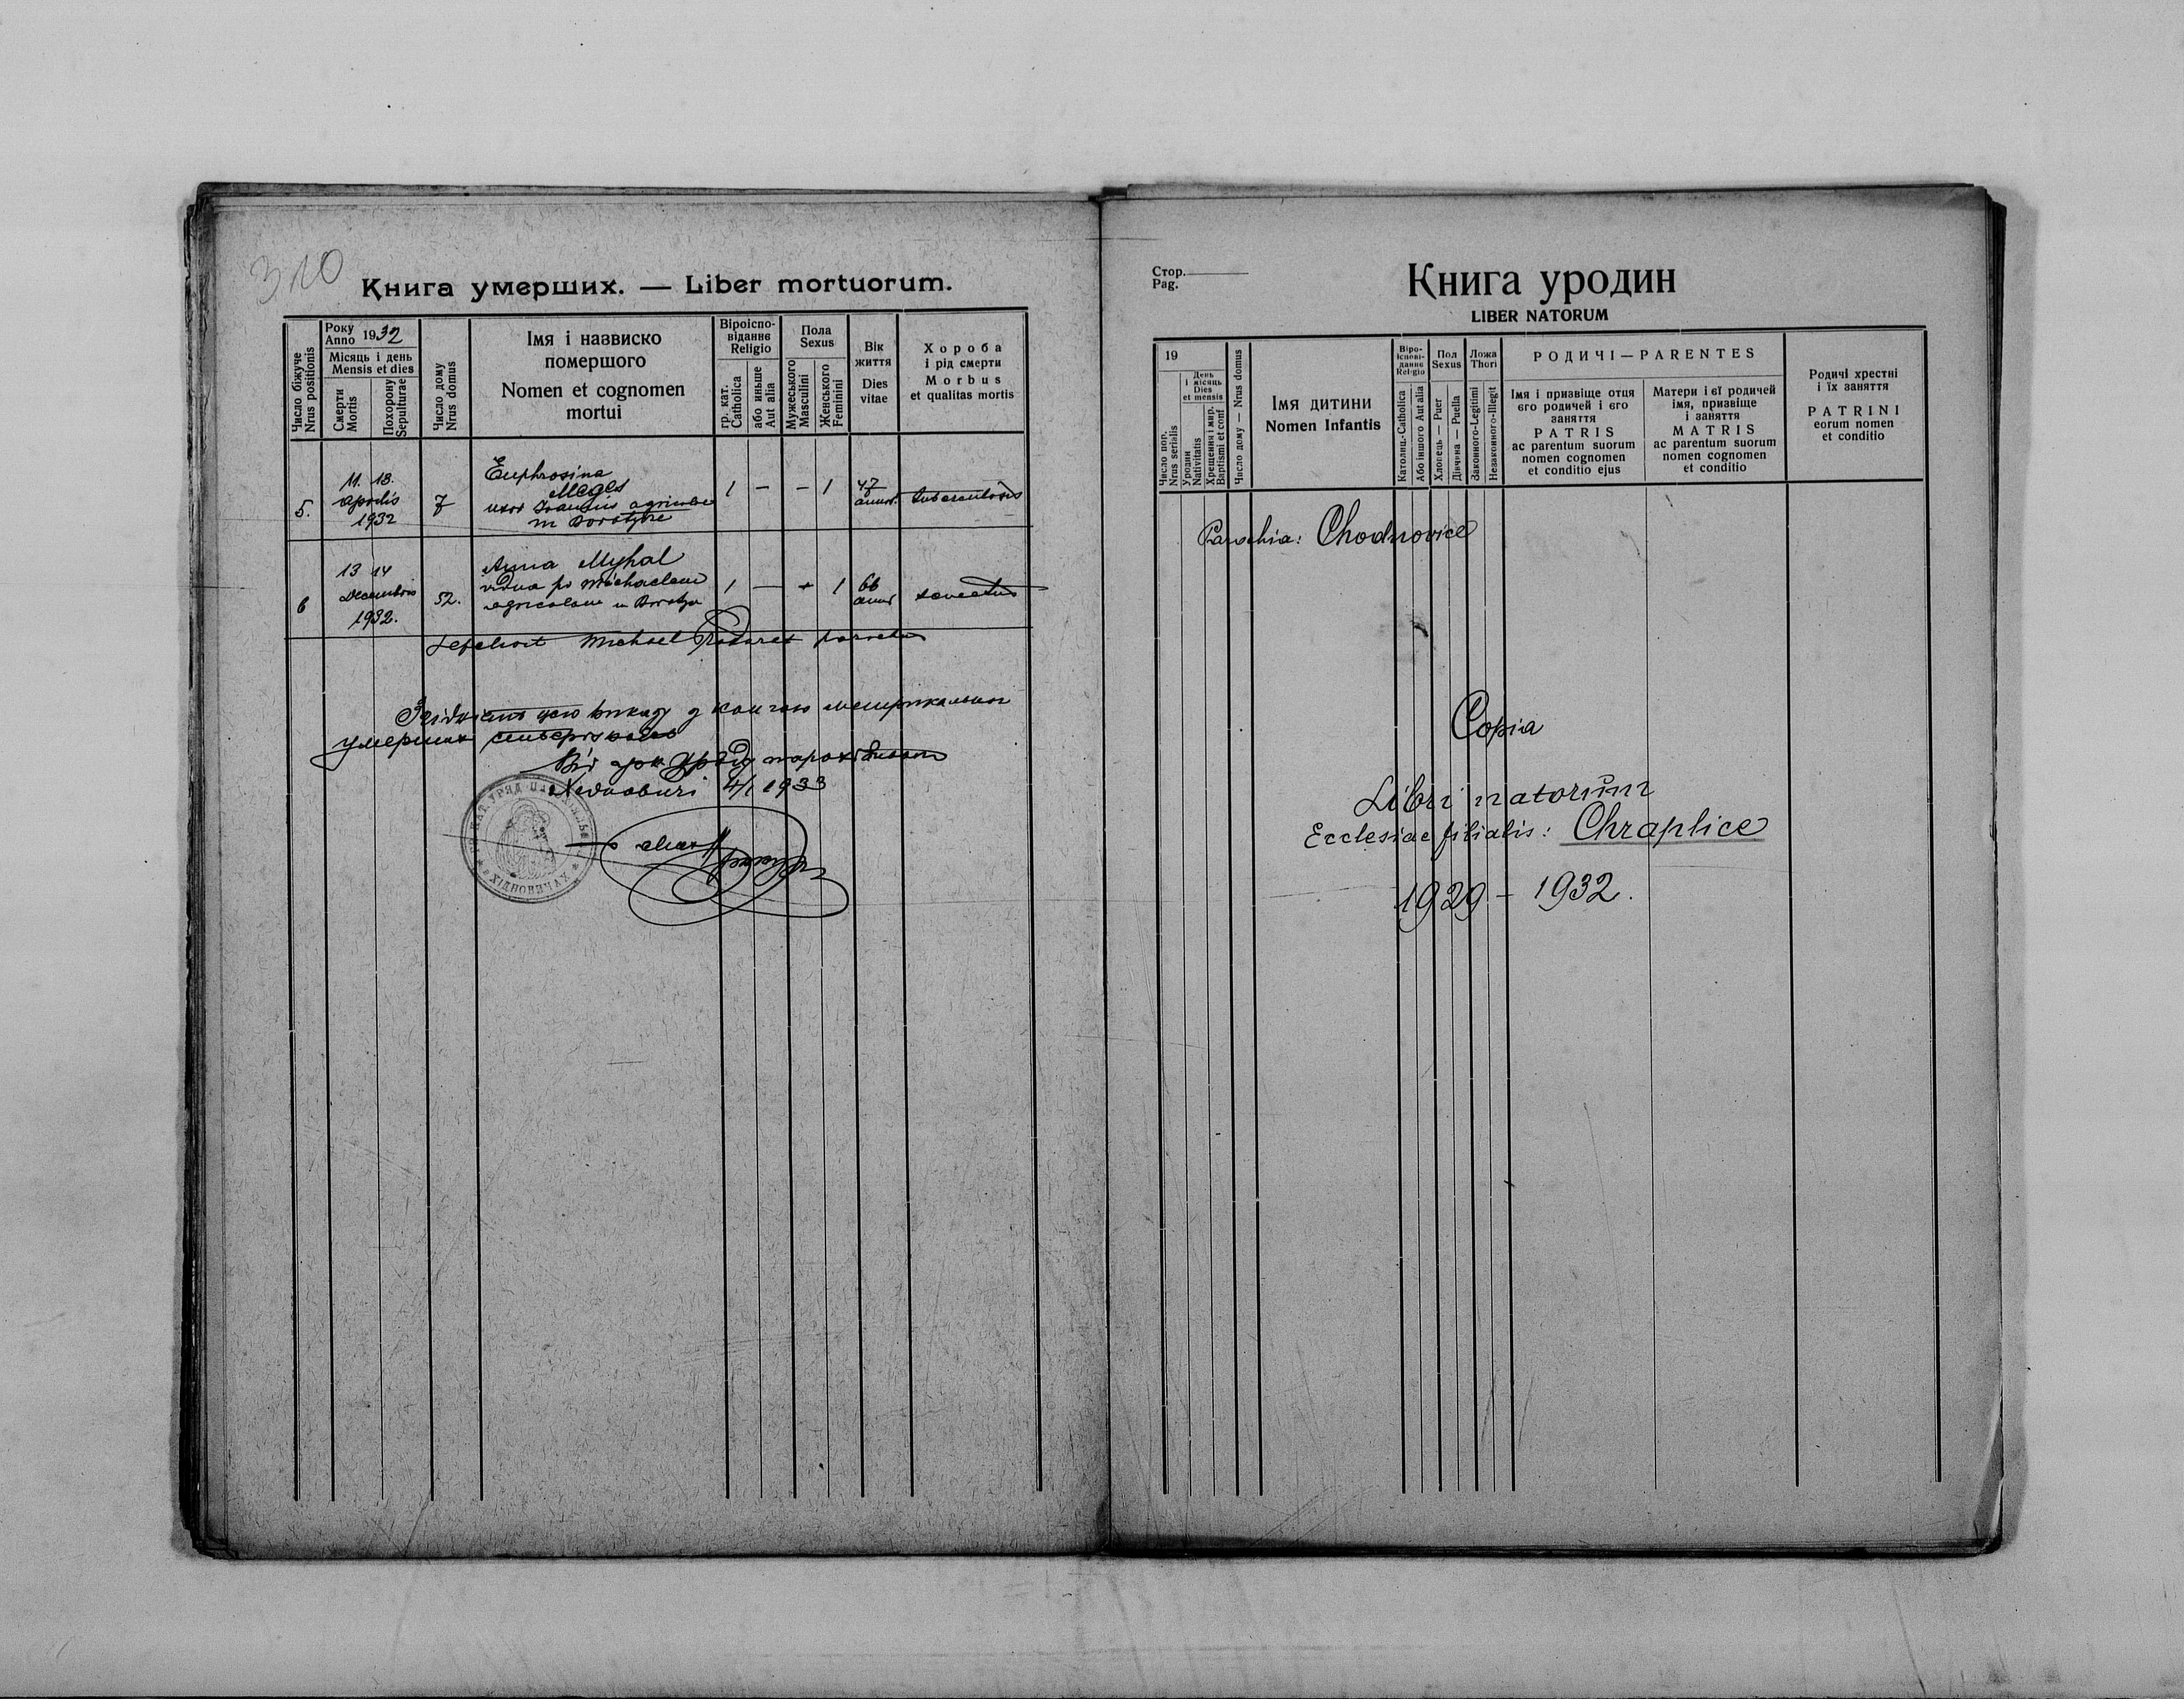 310
Книга умерших. — Liber mortuorum.
Число біжуче
Nrus positionis
Року
Anno 1932
Місяць і день
Mensis et dies
Смерти
Mortis
Похорону
Sepulturae
Число дому
Nrus domus
Імя іназвиско
помершого
Nomen et cognomen
mortui
Віроіспо-
віданнє
Religio
гр. кат.
Catholica
або иньше
Aut alia
Пола
Sexus
Мужеського
Masculini
Женського
Feminini
Вік
життя
Dies
vitae
Хороба
і рід смерти
Morbus
et qualitas mortis
5.
11. 13.
aprilis
1932
7
Euphrosina
Meges
uxor Joannis agricolae
in Boratyne
1 — — 1
47
annor.
tuberculosis
6
13 14
Decembris
1932.
52.
Anna Myhal
vidua po Michaelem
agricolam in
1 — + 1
66
annor
Sepelivit Michael parochus
з
умерших
Від гр. к. Уряду парохіяльного
4/I 1933
ХІДНОВИЧАХ
Стор.
Pag.
Книга уродин
LIBER NATORUM
19
Число пор.
Nrus serialis
День
і місяць
Dies
et mensis
Уродин
Nativitatis
Хрещення і мир.
Baptismi et conf
Число дому — Nrus domus
Імя дитини
Nomen Infantis
Віро-
іспові-
даннє
Religio
Католиц.-Catholica
Або іншого Aut alia
Пол
Sexus
Хлопець — Puer
Дівчина — Puella
Ложа
Thori
Законного-Legitimi
Незаконного-Illegit
РОДИЧІ — PARENTES
Імя і призвіще отця
єго родичей і єго
заняття
PATRIS
ac parentum suorum
nomen cognomen
et conditio ejus
Матери і єї родичей
імя, призвіще
і заняття
MATRIS
ac parentum suorum
nomen cognomen
et conditio
Родичі хрестні
і їх заняття
PATRINI
eorum nomen
et conditio
Parochia: Chodnovice
Copia
Libri natorum
Ecclesiae filialis: Chraplice
1929 - 1932.